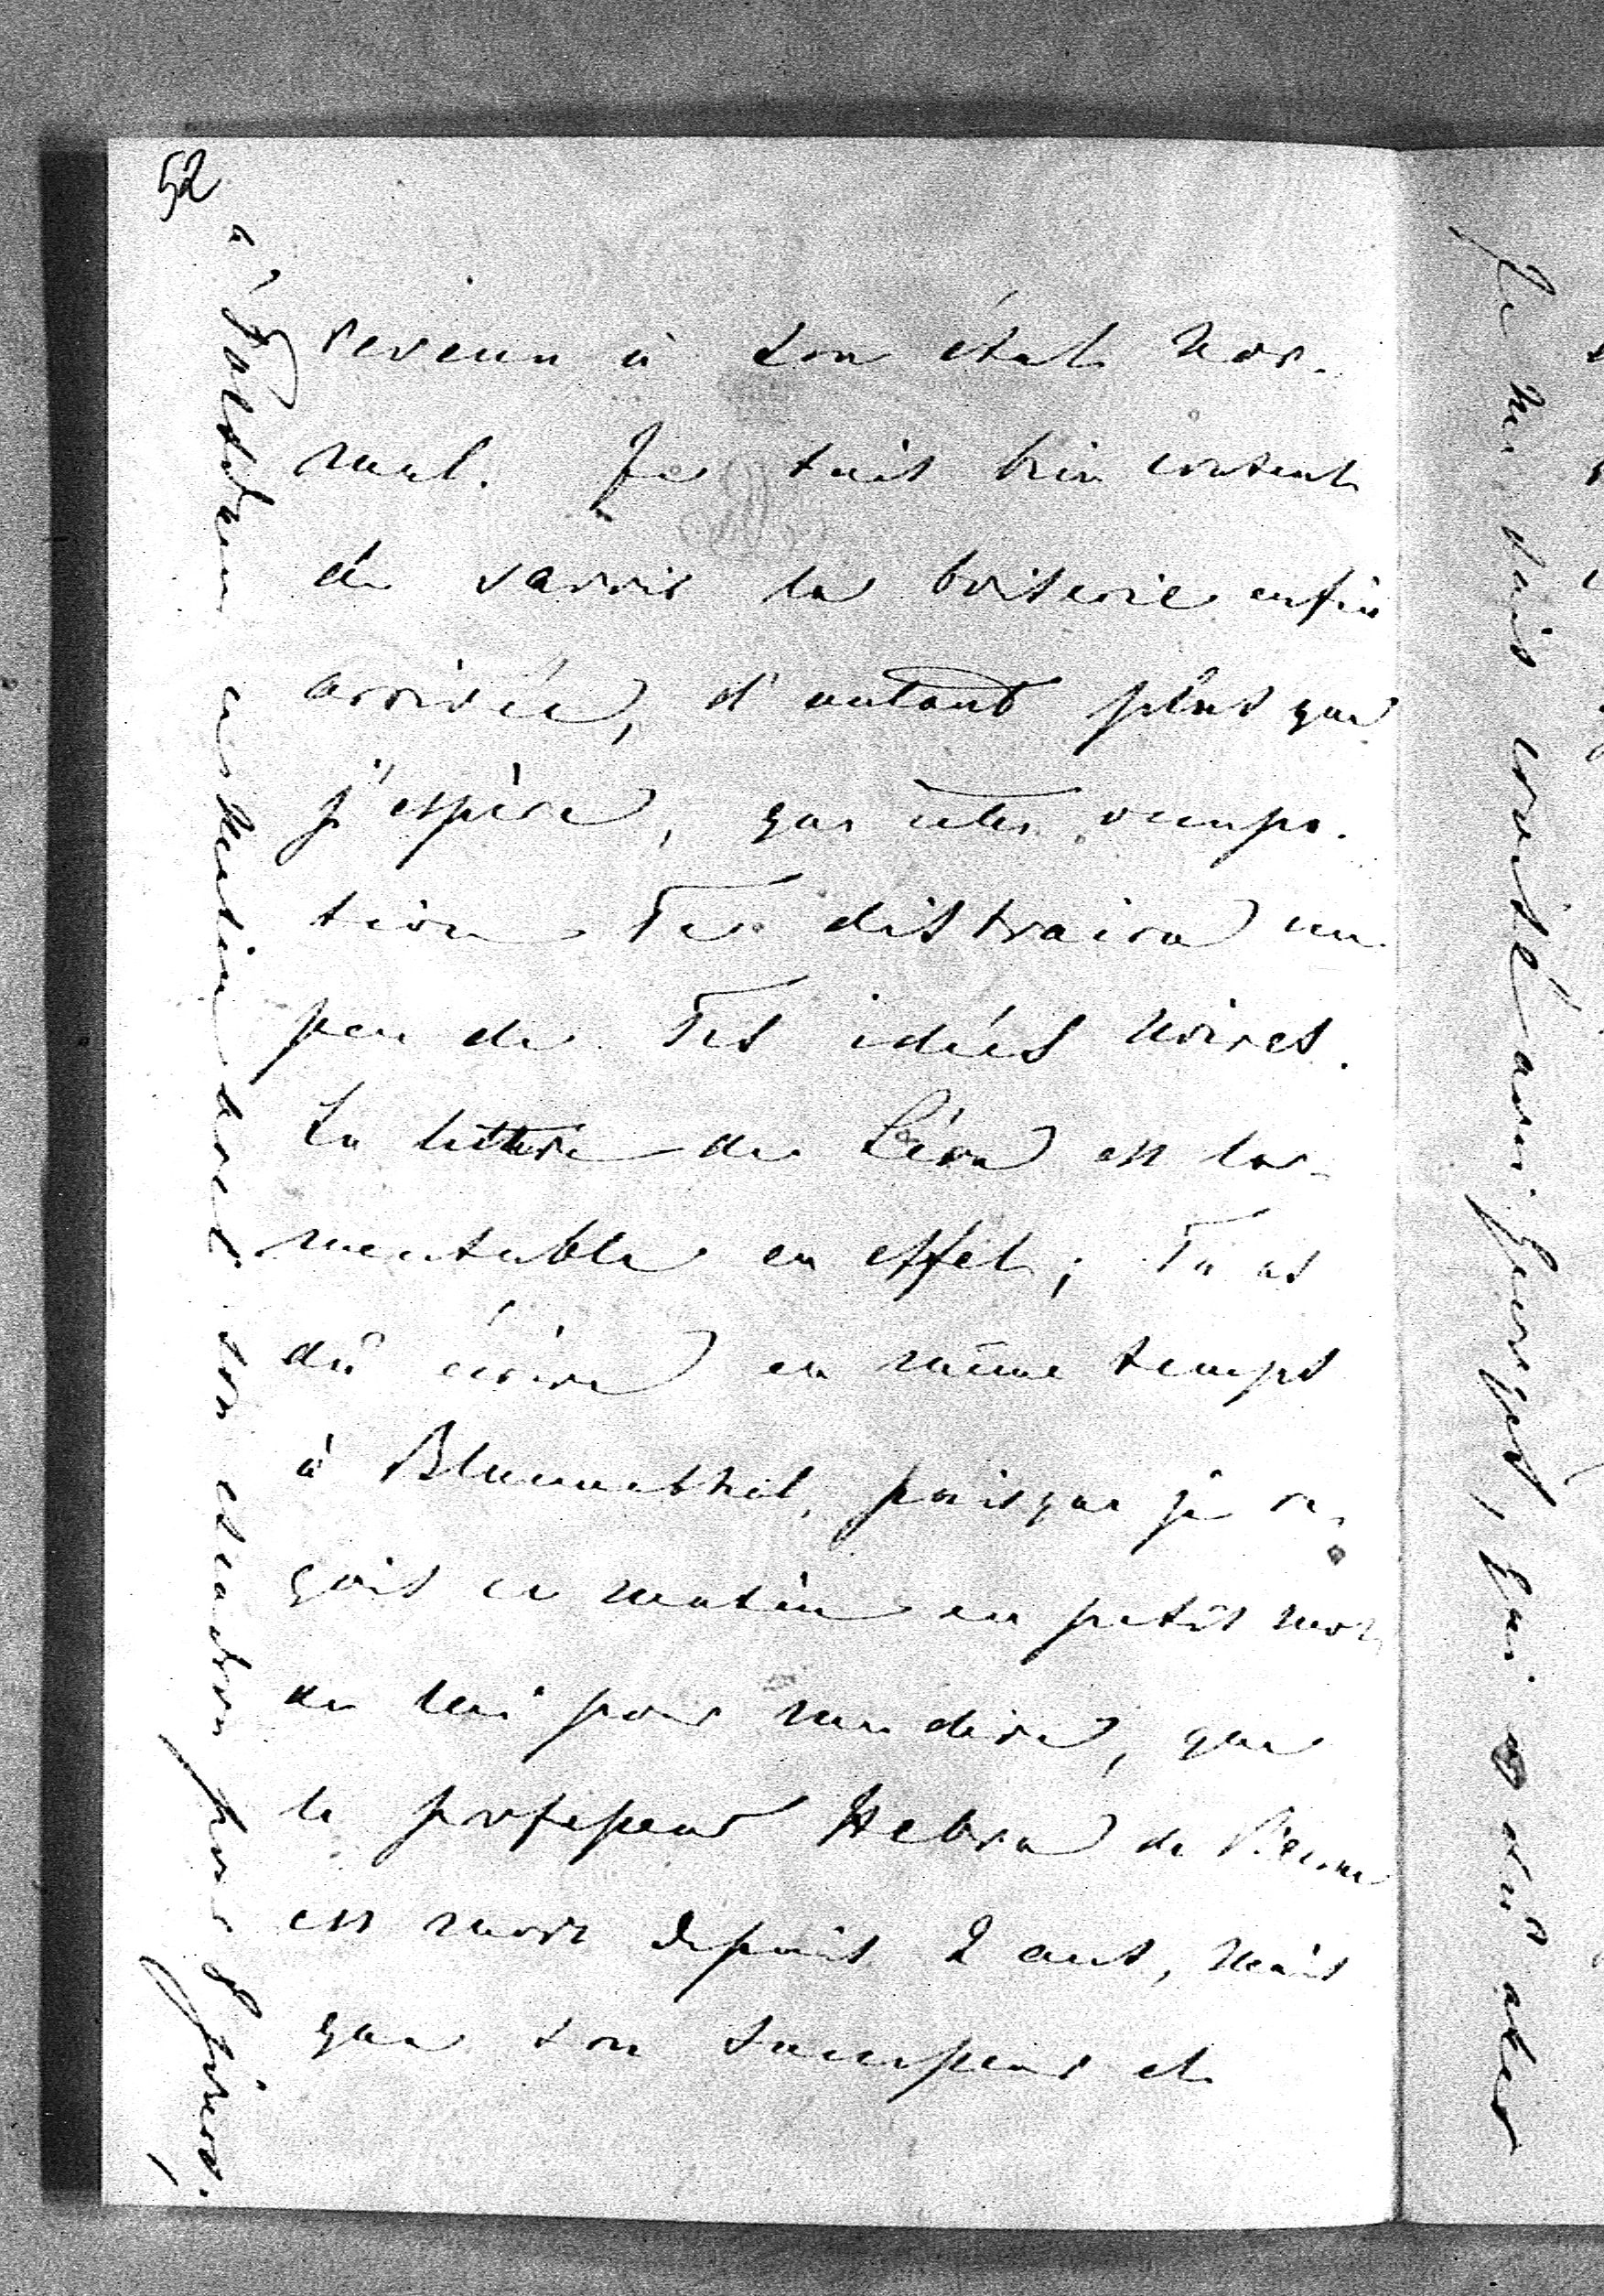 52
revenu à son état nor-
mal. Je suis bien content
de savoir la boiserie enfin
arrivée, d'autant plus que
j'espère, que cette occupa-
tion Te distraira un
peu de Tes idées noires.
La lettre de Léon est la-
mentable en effet; Tu as
dû écrire en même temps
à Blumenthal, puisque je re-
çois ce matin un petit mot
de lui pour me dire, que
le professeur Hebra de Vienne
est mort depuis 2 ans, mais
que son successeur et
à Potsdam ce matin avec son escadron pour 8 jours.
Je me suis croisé avec Georges, qui a dû aller